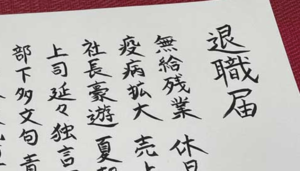 退職届
無給残業 休日
疫病拡大 売上
社長豪遊 夏
上司延々独言
部下多文句